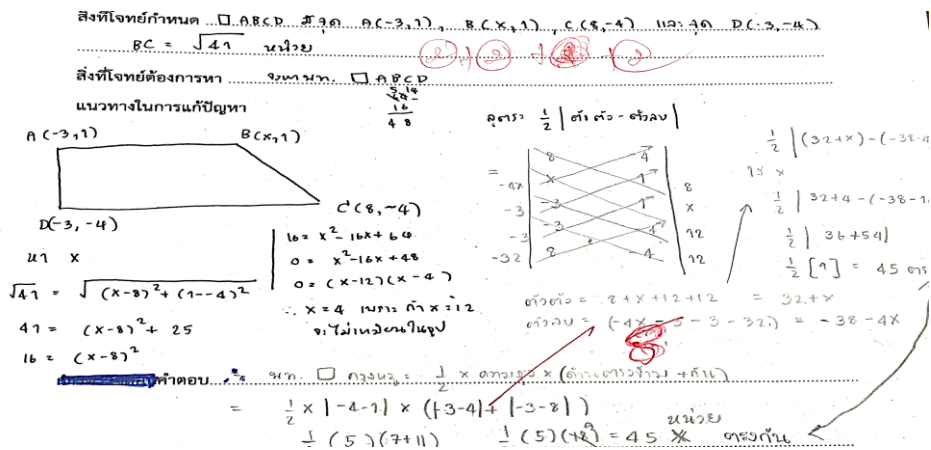 สิ่งที่โจทย์กำหนด □ ABCD มีจุด A(-3,1), B(x,1), C(8,-4) และ จุด D(-3,-4)
BC = √41 หน่วย
สิ่งที่โจทย์ต้องการหา จงหา พท. □ ABCD
แนวทางในการแก้ปัญหา
16
48
A(-3,1) B(x,1)
D(-3,-4) C(8,-4)
หา x
√41 = √(x-8)²+(1--4)²
41 = (x-8)² + 25
16 = (x-8)²
16 = x²-16x+64
0 = x²-16x+48
0 = (x-12)(x-4)
∴ x=4 เพราะ ถ้า x=12
จะไม่เหมือนในรูป
สูตร 1/2 | ตัวตัว - ตัวลบ |
=
8 -4
-4x x 1 8
-3 -3 1 x
-3 -3 -4 12
-32 8 -4 12
ตัวตัว = 8+x+12+12 = 32+x
ตัวลบ = (-4x-3-3-32) = -38-4x
1/2 | (32+x)-(-38-4
1/2 | 32+4-(-38-1
1/2 | 36+54|
1/2 [9] = 45 ตาร
คำตอบ ∴ พท. □ คางหมู = 1/2 × ความสูง × (ด้านตรงข้าม + กัน)
= 1/2 × |-4-1| × (|-3-4|+|-3-8|)
1/2 (5)(7+11) 1/2 (5)(18) = 45 หน่วย ตรงกัน